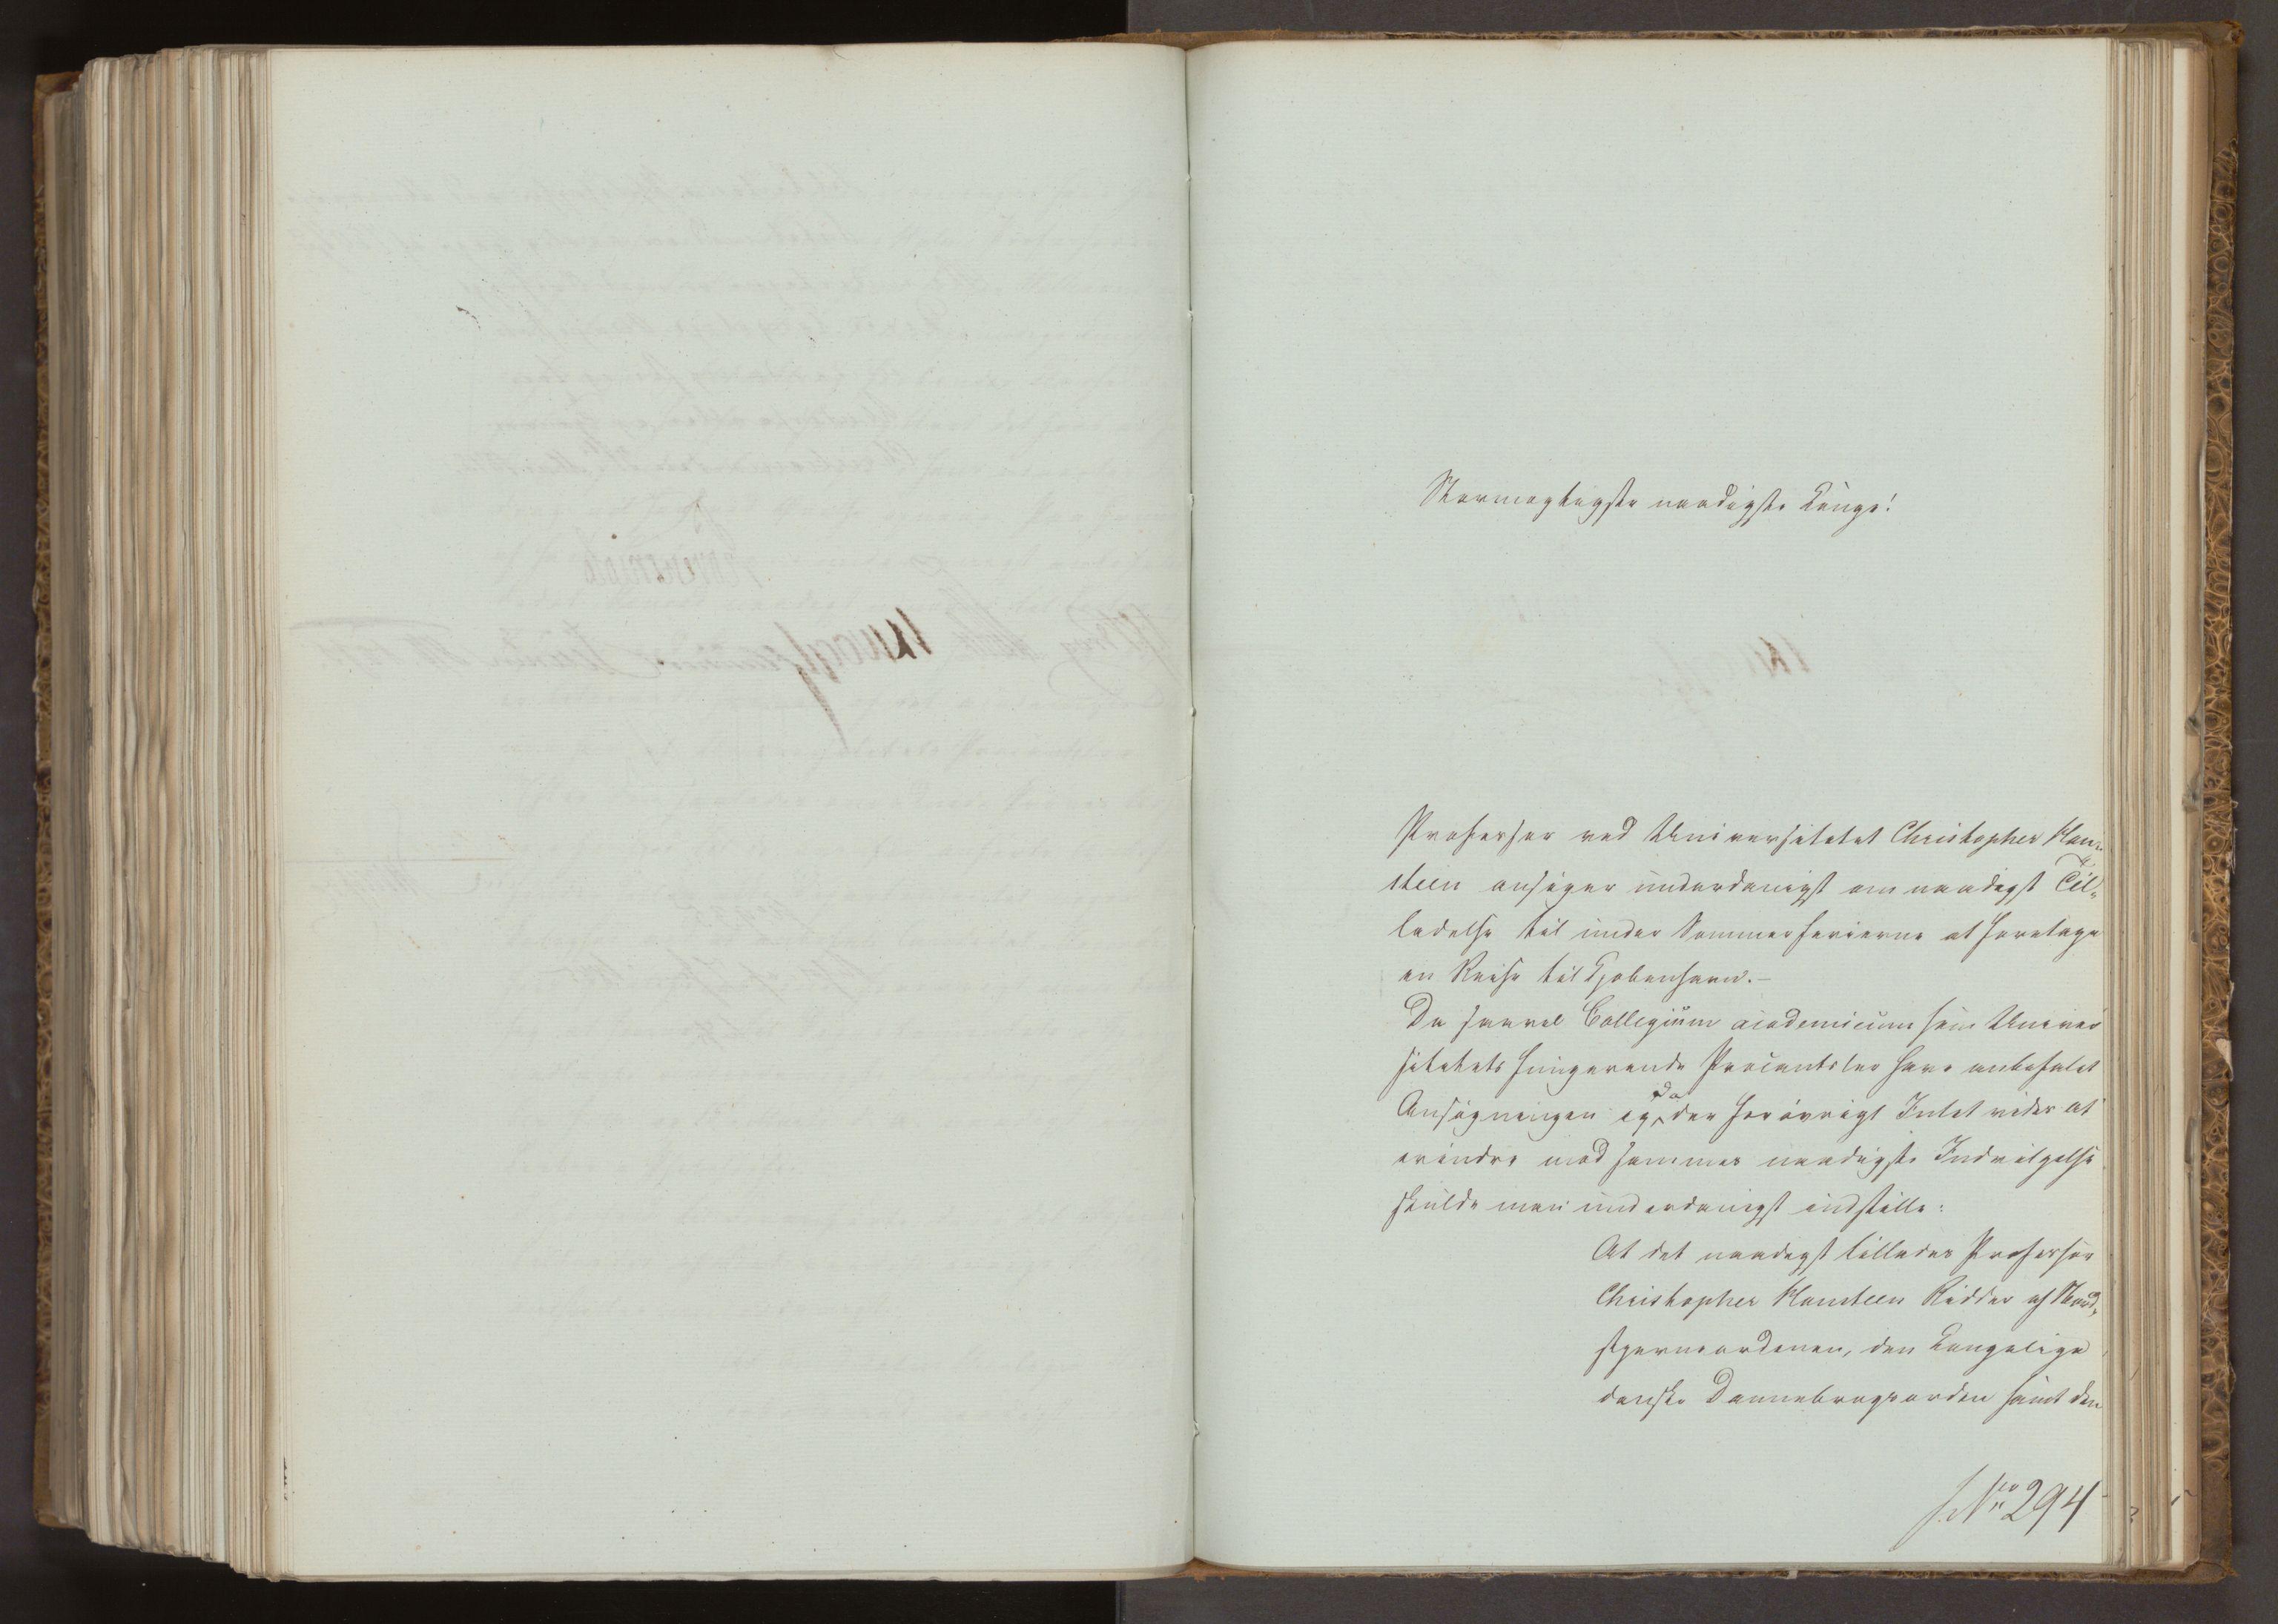 Stormægtigste naadigste Konge!
Professor ved Universitetet Christopher Han-
steen ansøger underdanigst om naadigst Til-
ladelse til under Sommerferierne at foretage
en Reise til Kjøbenhavn.-
Da saavel Collegium academicum som Univer
sitetets fungerende Procantsler have anbefalet
Ansøgningen og da der forøvrigt Intet vides at
erindre mod sammes naadigste Indvilgelse
skulde man underdanigst indstille:
At det naadigst tillades Professor
Christopher Hansteen Ridder af Nord-
stjerneordenen, den Kongelige
danske Dannebrogsorden samt den
No 294